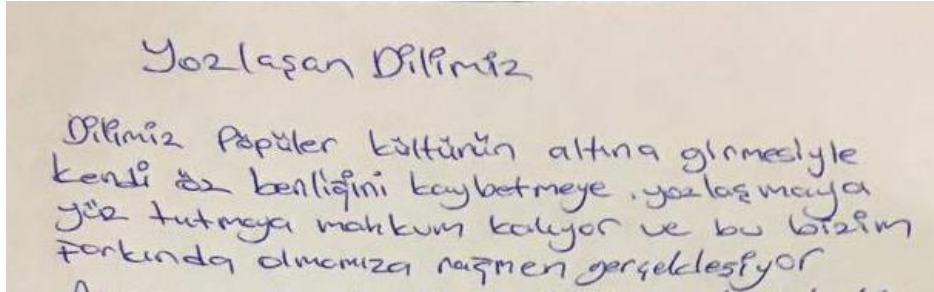 Yozlaşan Dilimiz
Dilimiz Popüler kültürün altına girmesiyle
kendi öz benliğini kaybetmeye, yozlaşmaya
yüz tutmaya mahkum kalıyor ve bu bizim
farkında olmamıza rağmen gerçekleşiyor